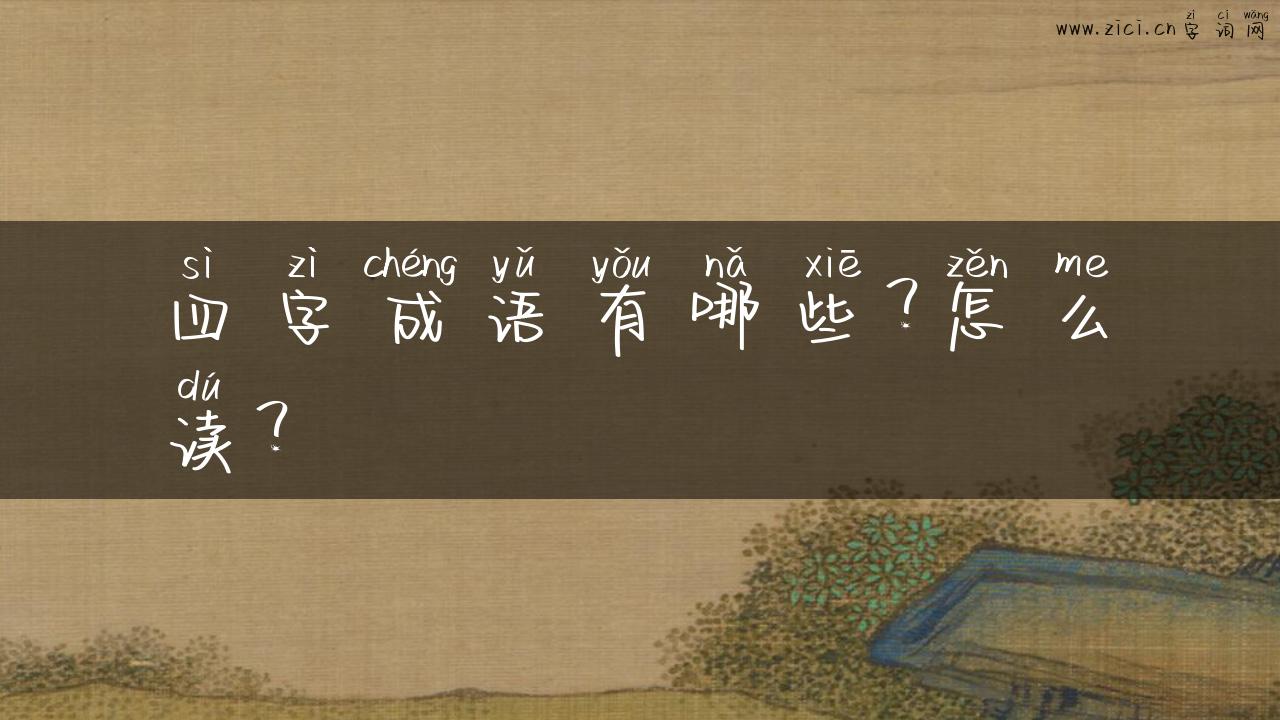 zì cí wǎng
www.zici.cn字词网
sì zì chéng yǔ yǒu nǎ xiē zěn me
四字成语有哪些？怎么
dú
读？